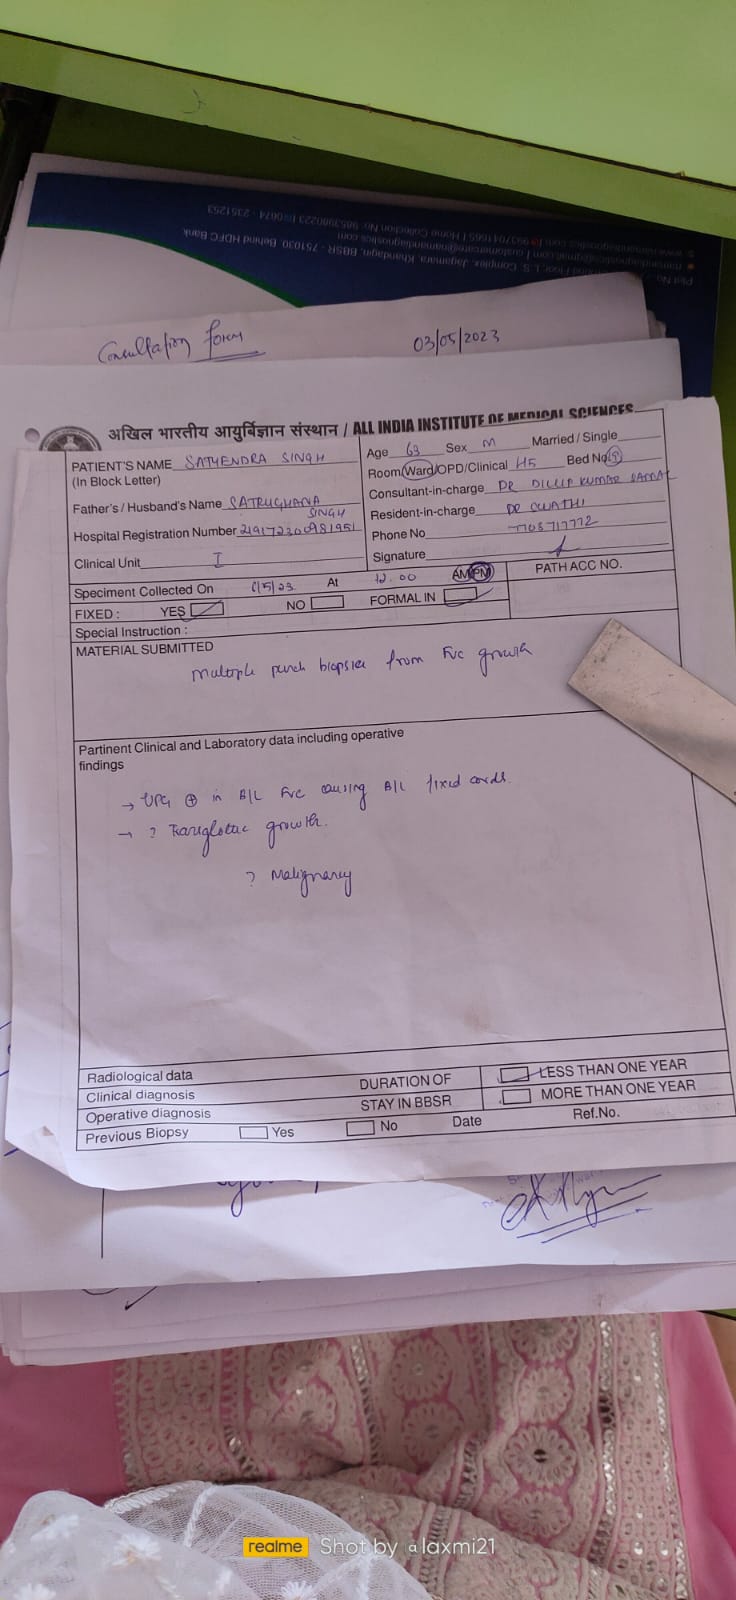 Plot No
L. S. Complex, Jagamara, Khandagiri, BBSR - 751030 Behind HDFC Bank
Home Collection No: 9853980223 0674 - 2351253
Consultation Form 03/05/2023
अखिल भारतीय आयुर्विज्ञान संस्थान / ALL INDIA INSTITUTE OF MEDICAL SCIENCES
PATIENT'S NAME SATYENDRA SINGH
(In Block Letter)
Age 63 Sex M Married / Single
Room/Ward/OPD/Clinical H5 Bed No
Father's / Husband's Name SATRUGHANA
SINGH
Consultant-in-charge DR DILLIP KUMAR SAMAL
Hospital Registration Number
Resident-in-charge DR
Phone No
Clinical Unit I
Signature
Speciment Collected On /5/23 At 12.00 AM/PM PATH ACC NO.
FIXED : YES NO FORMAL IN
Special Instruction :
MATERIAL SUBMITTED
Multiple punch biopsies from FVC growth
Partinent Clinical and Laboratory data including operative
findings
→ UPG ⊕ in B/L FVC causing B/L fixed cords.
→ ? Transglottic growth.
? Malignancy
Radiological data
Clinical diagnosis
Operative diagnosis
Previous Biopsy Yes No Date Ref.No.
DURATION OF
STAY IN BBSR
LESS THAN ONE YEAR
MORE THAN ONE YEAR
realme Shot by @laxmi21